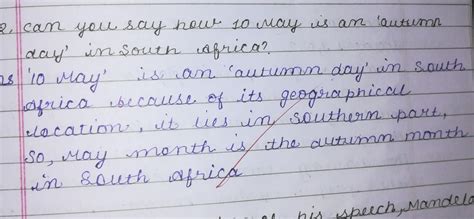 2. can you say how 10 may is an 'autumn
day' in South Africa?
'10 May' is an 'autumn day' in South
Africa because of its geographical
location, it lies in southern part,
So, May month is the autumn month
in South Africa
his speech, Mandela